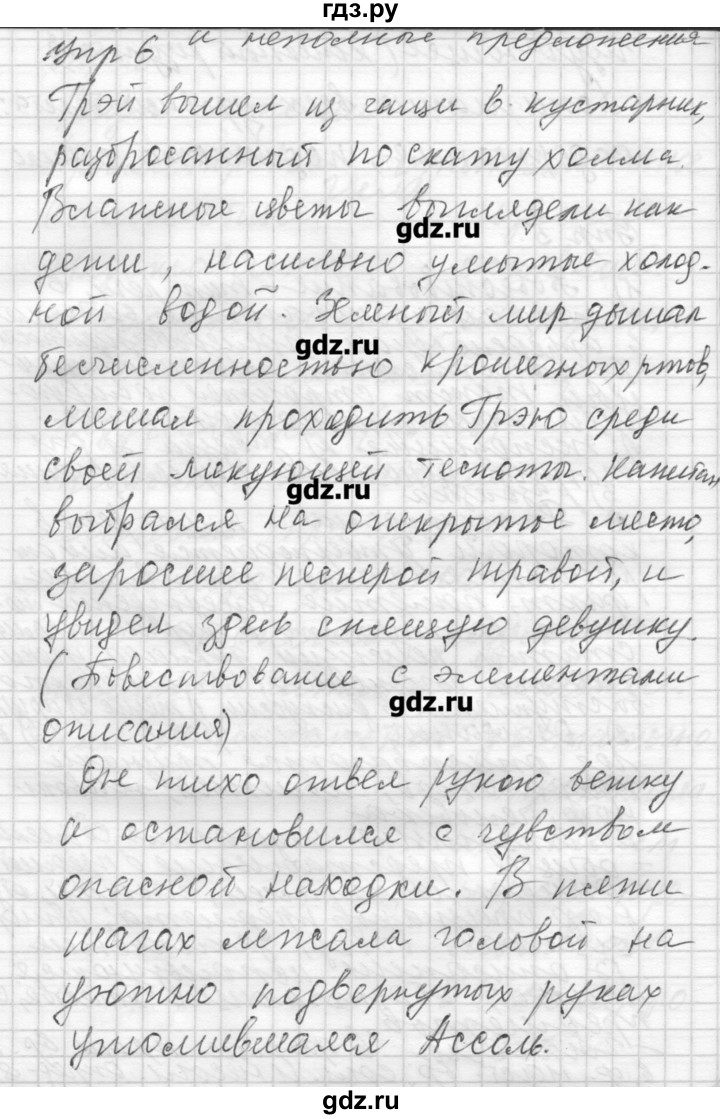 гдз.ру
и неполные предложения
Упр 6
Грэй вышел из чащи в кустарник,
разбросанный по скату холма.
Влажные цветы выглядели как
gdz.ru
дети, насильно умытые холод-
ной водой. Зеленый мир дышал
gdz.ru
бесчисленностью крошечных ртов,
мешал проходить Грэю среди
своей ликующей тесноты. Капитан
gdz.ru
выбрался на открытое место,
заросшее пестрой травой, и
увидел здесь спящую девушку.
(Повествование с элементами
gdz.ru
описания)
Он тихо отвел рукою ветку
и остановился с чувством
опасной находки. В пяти
шагах лежала головой на
уютно подвернутых руках
утомившаяся Ассоль.
gdz.ru